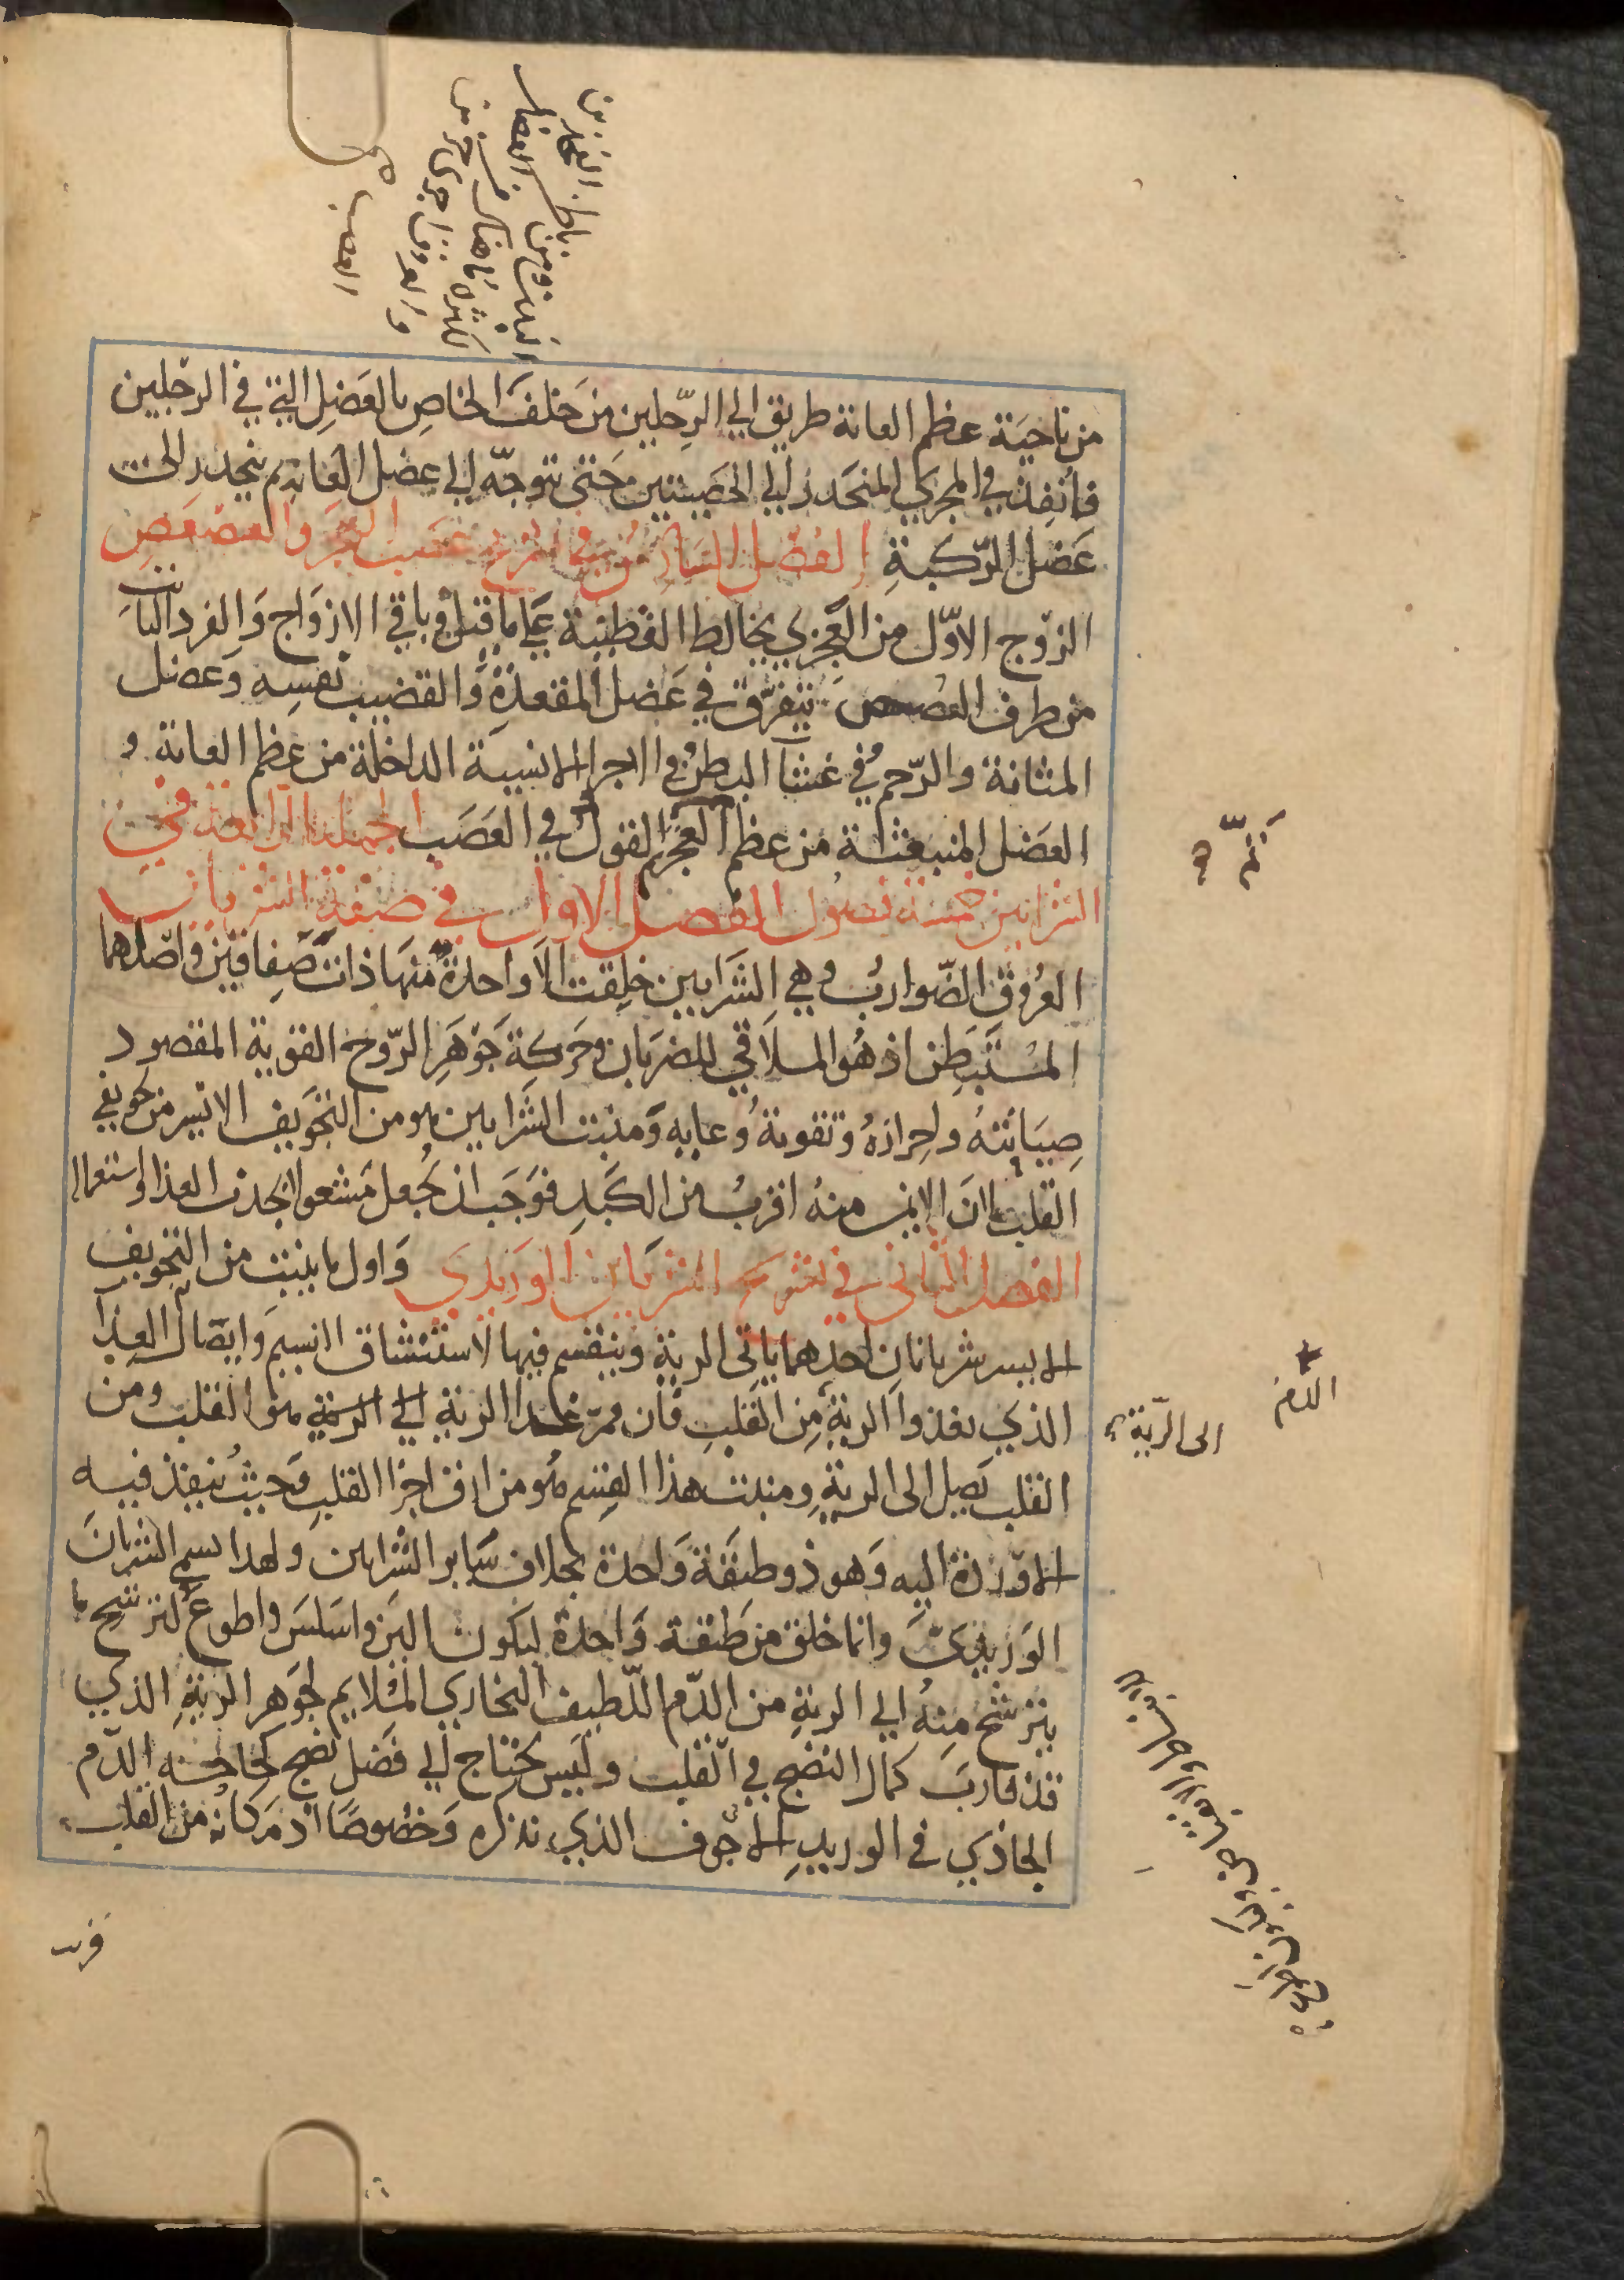 الفخذين
باطن العضل
من ناحية عظم العانة طريق الي الرجلين من خلف الخاص بالعضل التي في الرجلين
فانفذ في المجري المنحدر الي الخصيتين حتى تتوجه الي عضل العانة ثم ينحدر الى
عضل الركبة الفصل السادس في تشريح عصب العجز والعصعص
الزوج الاول من العجزي يخالط القطنية علي ما قيل وباقي الازواج والفرد الثابت
من طرف العصعص يتفرق في عضل المقعدة والقضيب نفسه وعضل
المثانة والرحم وفي غشا البطن وفي الاجزا الانسية الداخلة من عظم العانة و
العضل المنبعثة من عظم العجز تم القول في العصب الجملة الرابعة في
الشرايين خمسة فصول الفصل الاول في صفة الشريان
العروق الضوارب وهي الشرايين خلقت الا واحدة منها ذات صفاقين واصلبهما
المستبطن اذ هو الملاقي للضربان وحركة جوهر الروح القوية المقصود
صيانته واحرازه وتقوية وعايه ومنبت الشرايين هو من التجويف الايسر من تجويفي
القلب لان الايمن منه اقرب من الكبد فوجب ان يجعل مشغولا بجذب الغذا واستعماله
الفصل الثاني في تشريح الشريان الوريدي واول ما ينبت من التجويف
الايسر شريانان احدهما ياتي الرية وينقسم فيها لاستنشاق النسيم وايصال الغذا
الذي يغذوا الرية من القلب فان ممر غذا الرية الي الرية هو القلب ومن
الى الرية
الدم
القلب يصل الى الرية ومنبت هذا القسم هو من ارق اجزا القلب وحيث ينفذ فيه
الاوردة اليه وهو ذو طبقة واحدة بخلاف ساير الشرايين ولهذا يسمي الشريان
الوريدي وانما خلق من طبقة واحدة ليكون الين واسلس واطوع لترشح ما
يترشح منه الي الرية من الدم اللطيف البخاري الملايم لجوهر الرية الذي
قد قارب كمال النضج في القلب وليس يحتاج الي فضل نضج كحاجة الدم
الجاذي في الوريد الاجوف الذي نذكره وخصوصا اذ مكانه من القلب
قريب